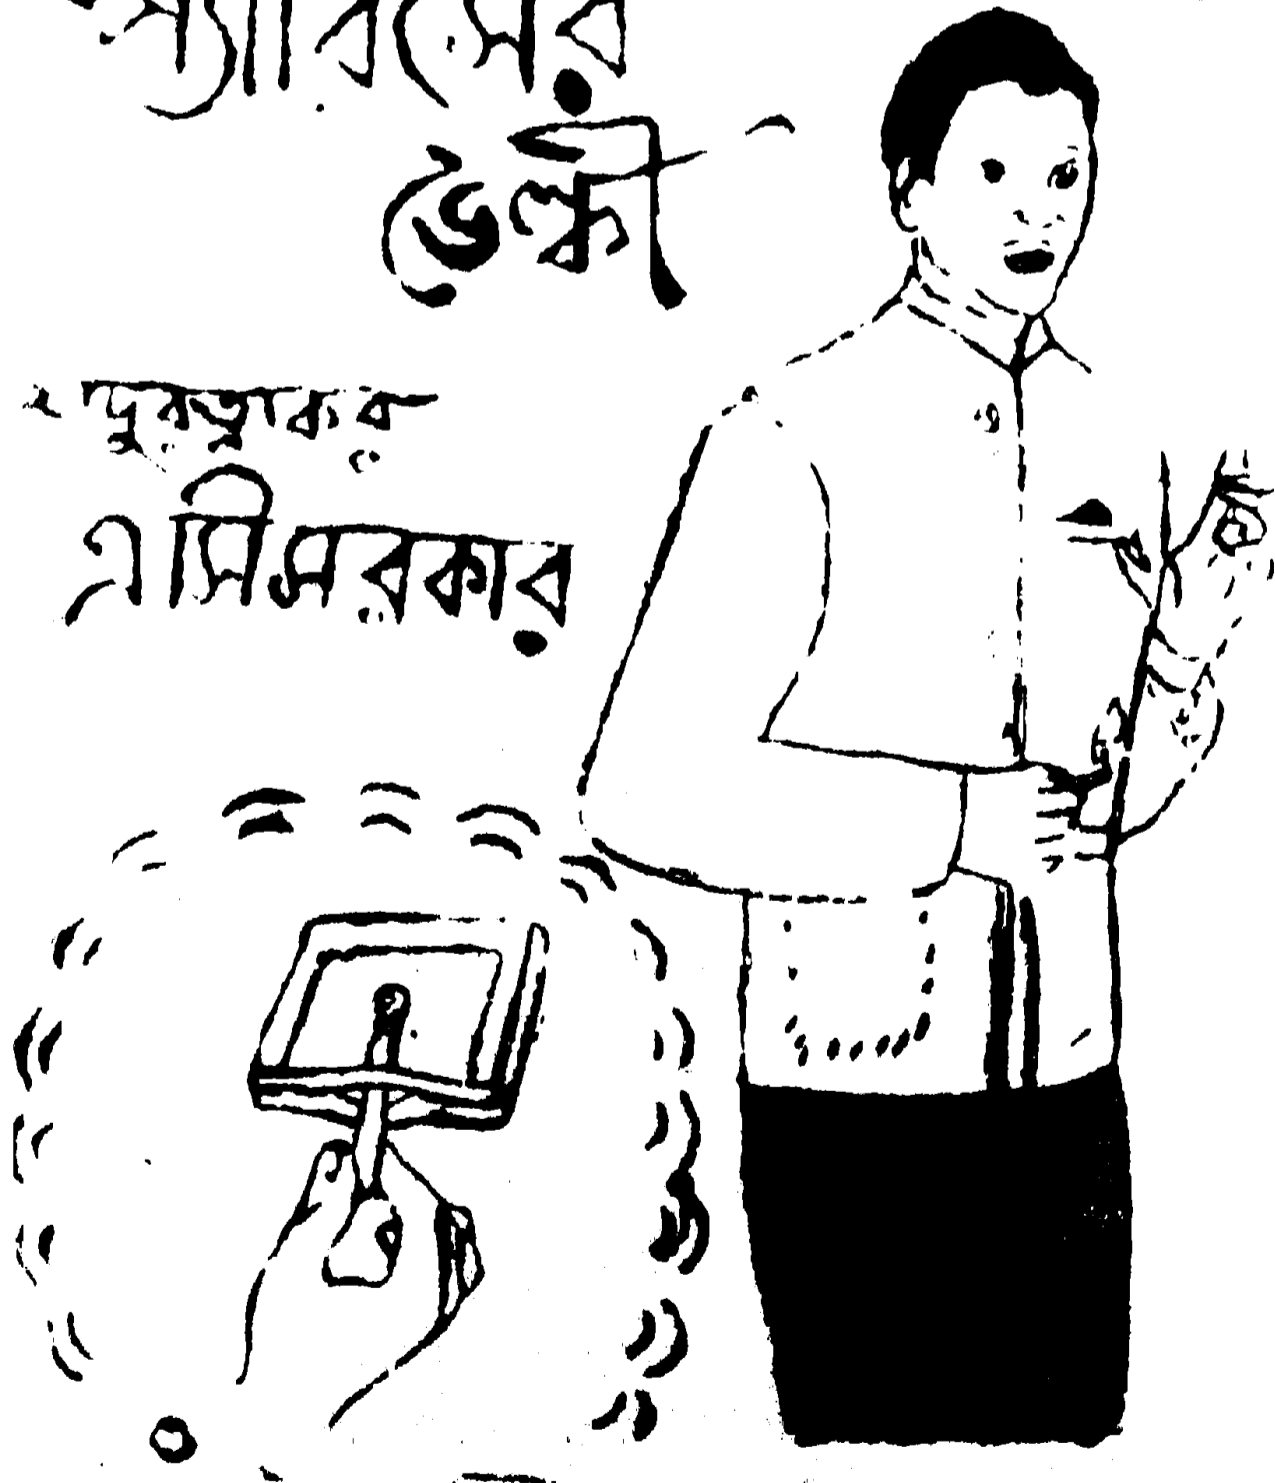 প্যারিসের
ভেল্কী
যাদুরত্নাকর
এ সি সরকার